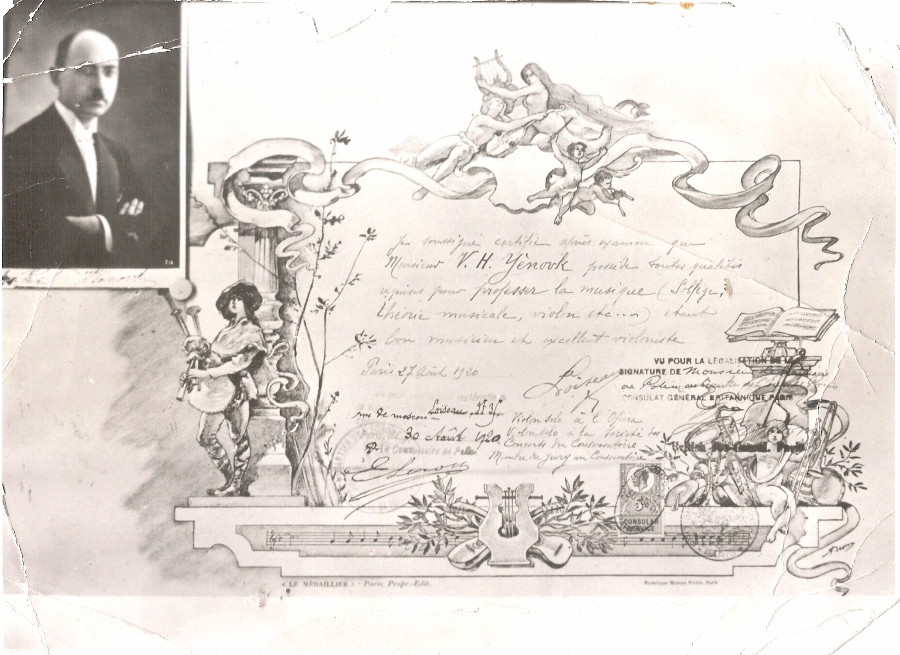 Je soussigné certifie après examen que
Monsieur V. H. Yénovk possède toutes qualités
requises pour professer la musique (Solfège,
théorie musicale, violon etc...) étant
bon musicien et excellent violoniste
Paris 27 Août 1920
Loiseau
VU POUR LA LÉGALISATION DE LA
SIGNATURE DE Monsieur
de Police
CONSULAT GÉNÉRAL BRITANNIQUE PARIS
rue de moscou Loiseau
30 Août 1920
P. Le Commissaire de Police
Violon solo à l'Opéra
Violon solo à la Société des
Concerts du Conservatoire
Membre du jury au Conservatoire
CONSULAR
SERVICE
« LE MÉDAILLIER » - Paris, Propr.-Edit.